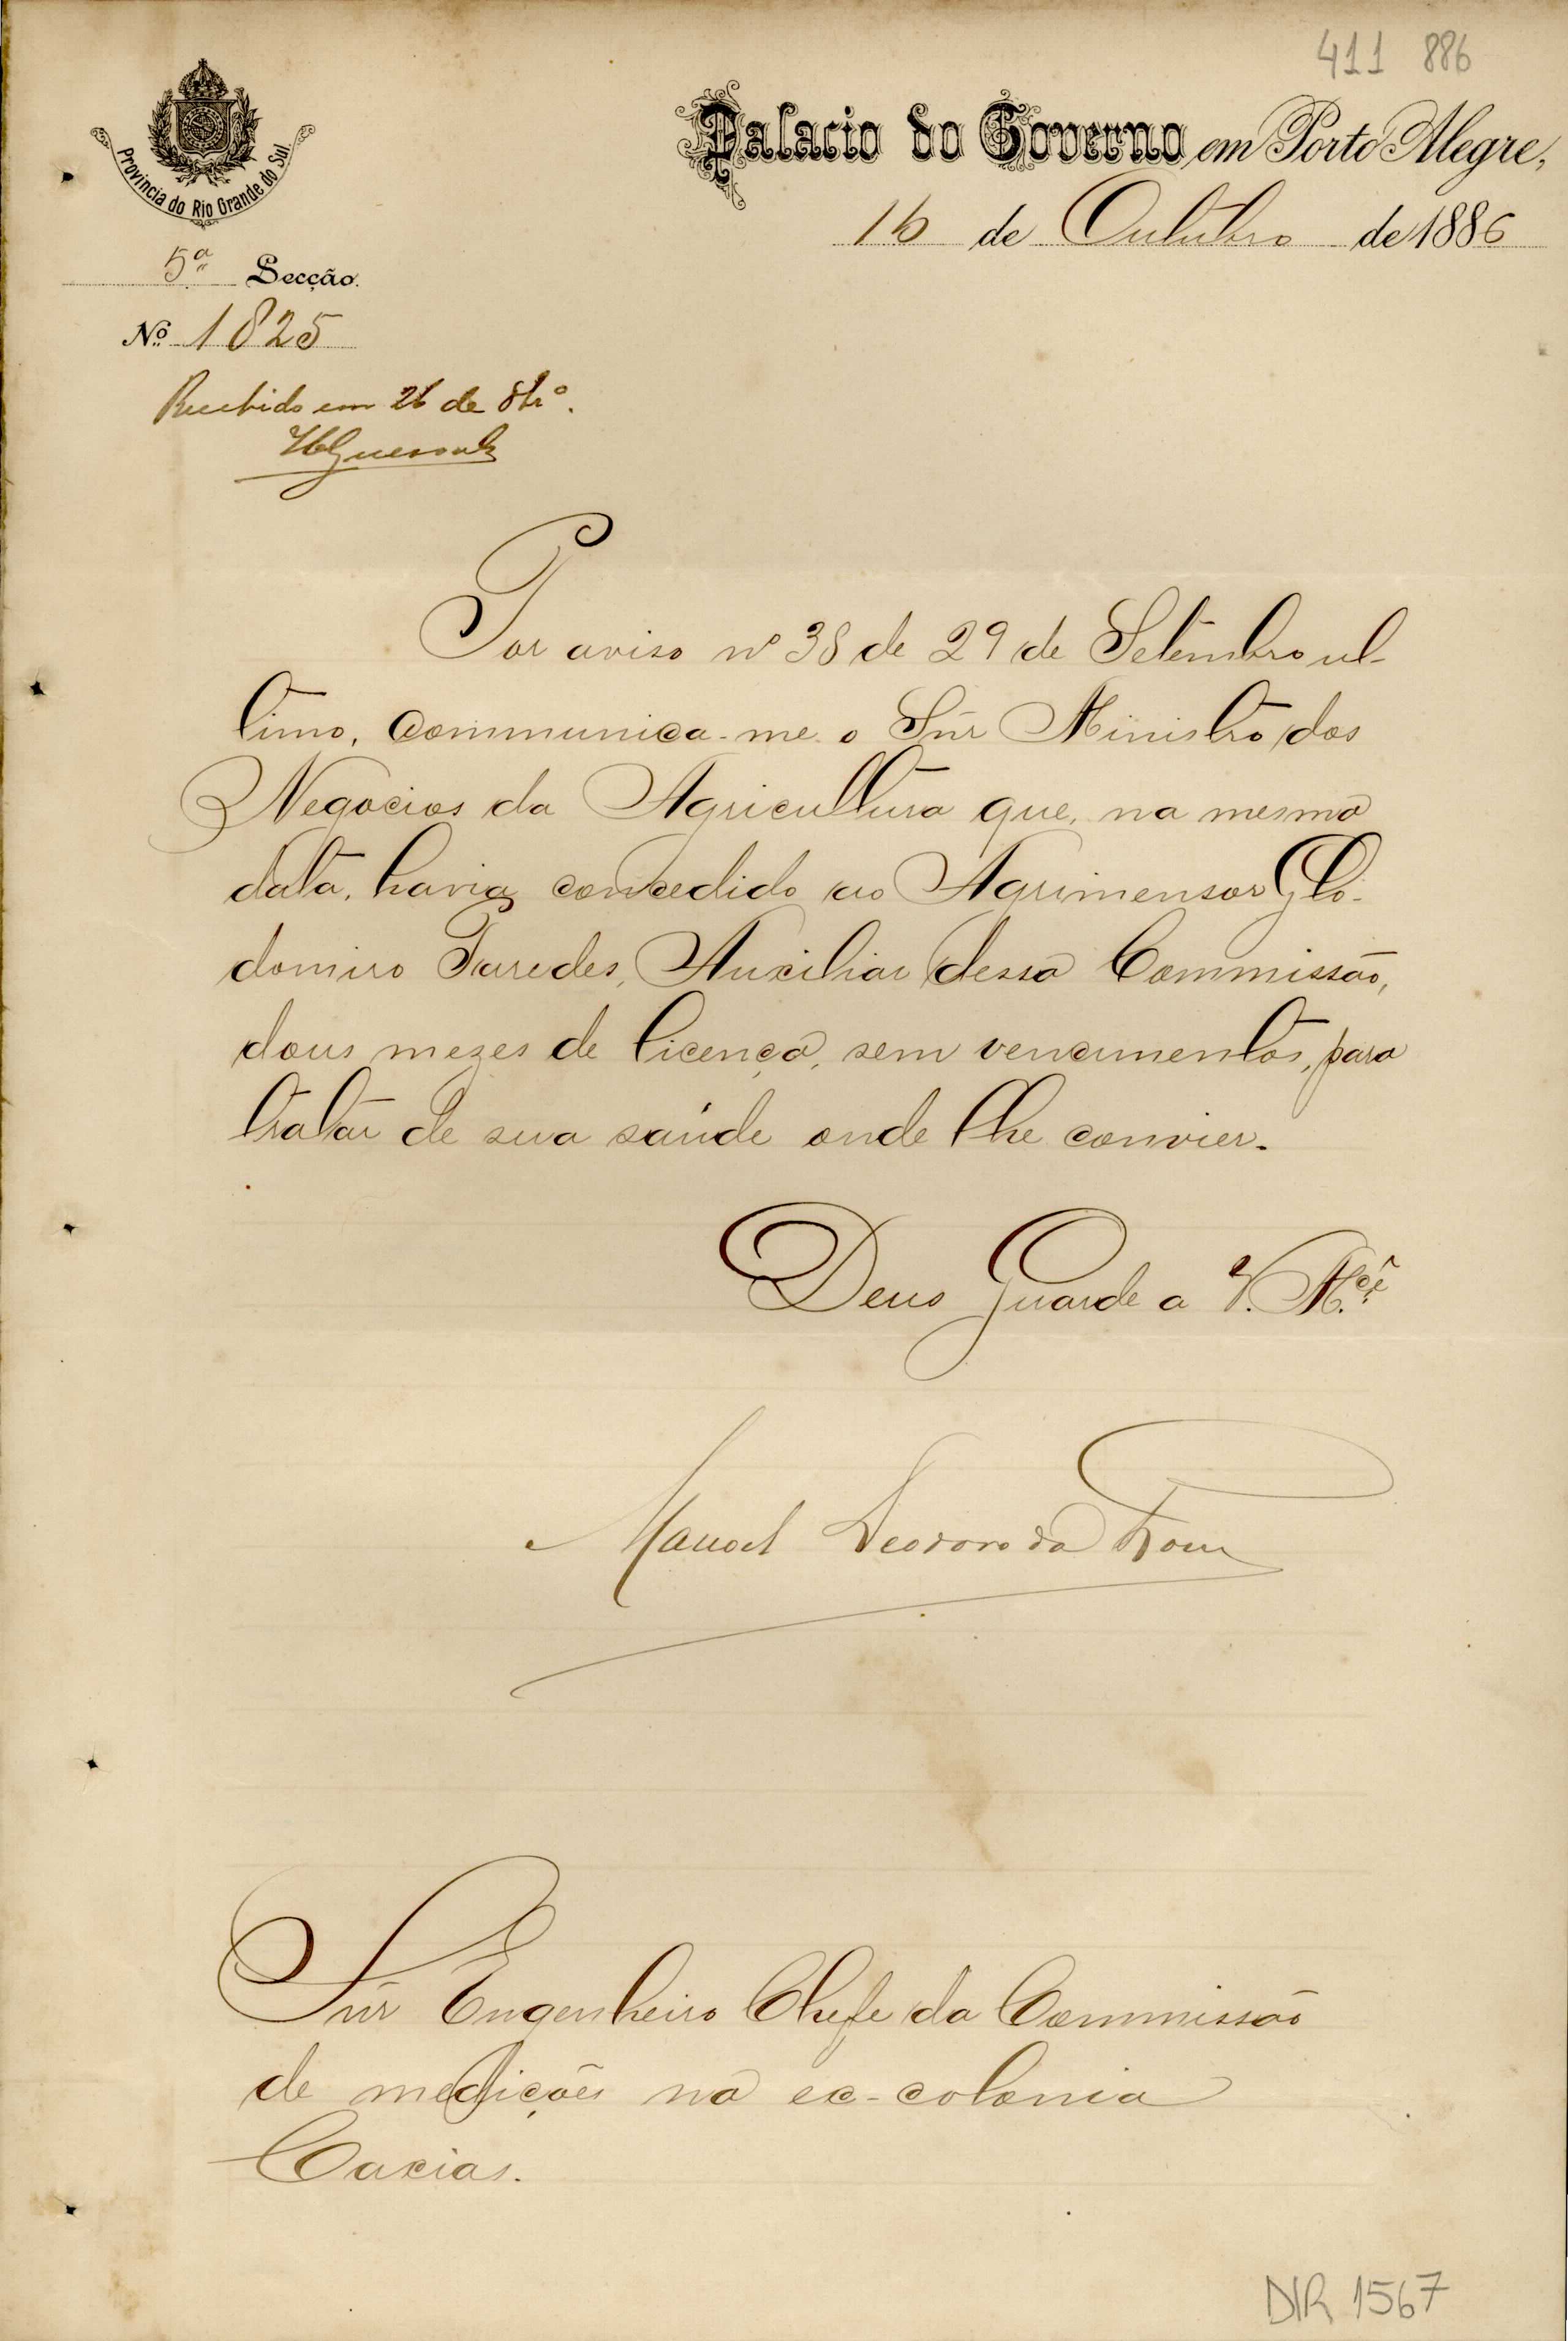 411 886
Provincia do Rio Grande do Sul
Palacio do Governo em Porto Alegre,
16 de Outubro de 1886
5ª Secção.
Nº 1825
Recebido em 26 de 8brº.
Por aviso nº 38 de 29 de Setembro ul-
timo, communica-me o Snr Ministro dos
Negocios da Agricultura que, na mesma
data, havia concedido ao Agrimensor Glo-
domiro Paredes, Auxiliar dessa Commissão,
dous mezes de licença, sem vencimentos, para
tratar de sua saúde onde lhe convier.
Deus Guarde a V. M.cê
Manoel Deodoro da Fonca
Snr Engenheiro Chefe da Commissão
de medições na ex-colonia
Caxias.
DIR 1567